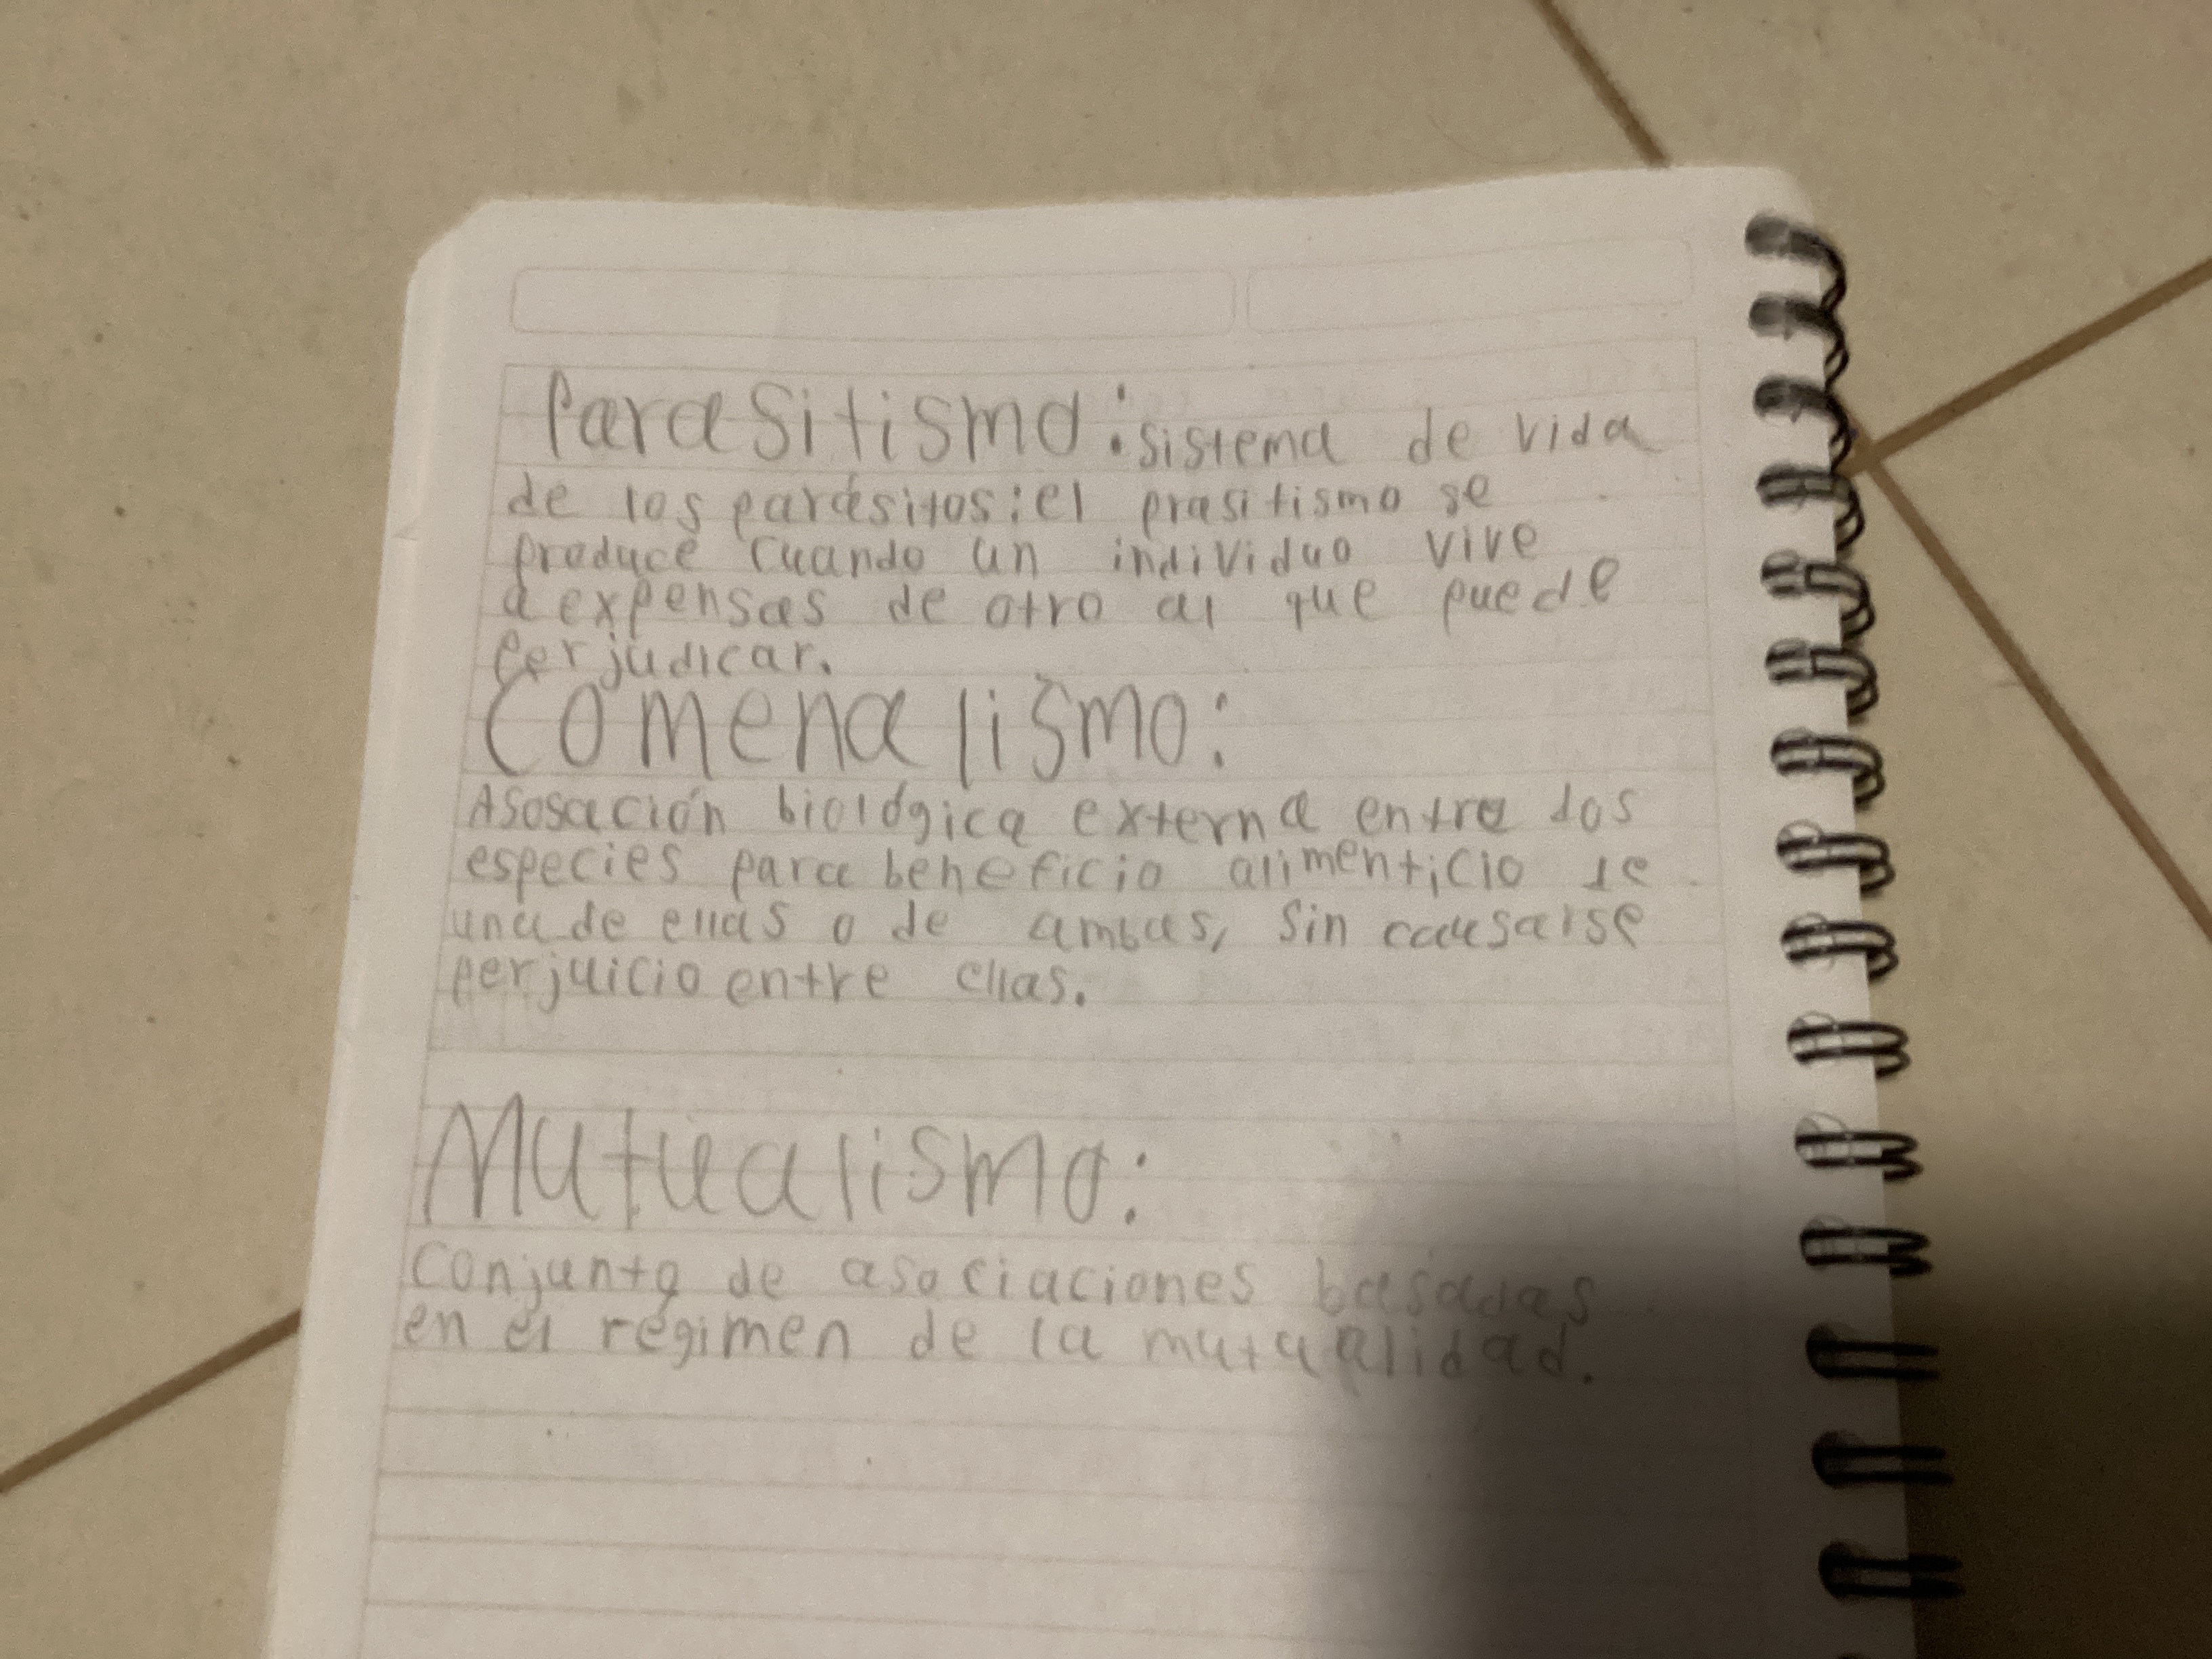 Parasitismo: sistema de vida
de los parásitos: el prasitismo se
produce cuando un individuo vive
a expensas de otro al que puede
perjudicar.
Comenalismo:
Asosación biológica externa entre dos
especies para beneficio alimenticio de
una de ellas o de ambas, sin causarse
perjuicio entre ellas.
Mutualismo:
Conjunto de asociaciones basadas
en el régimen de la mutualidad.